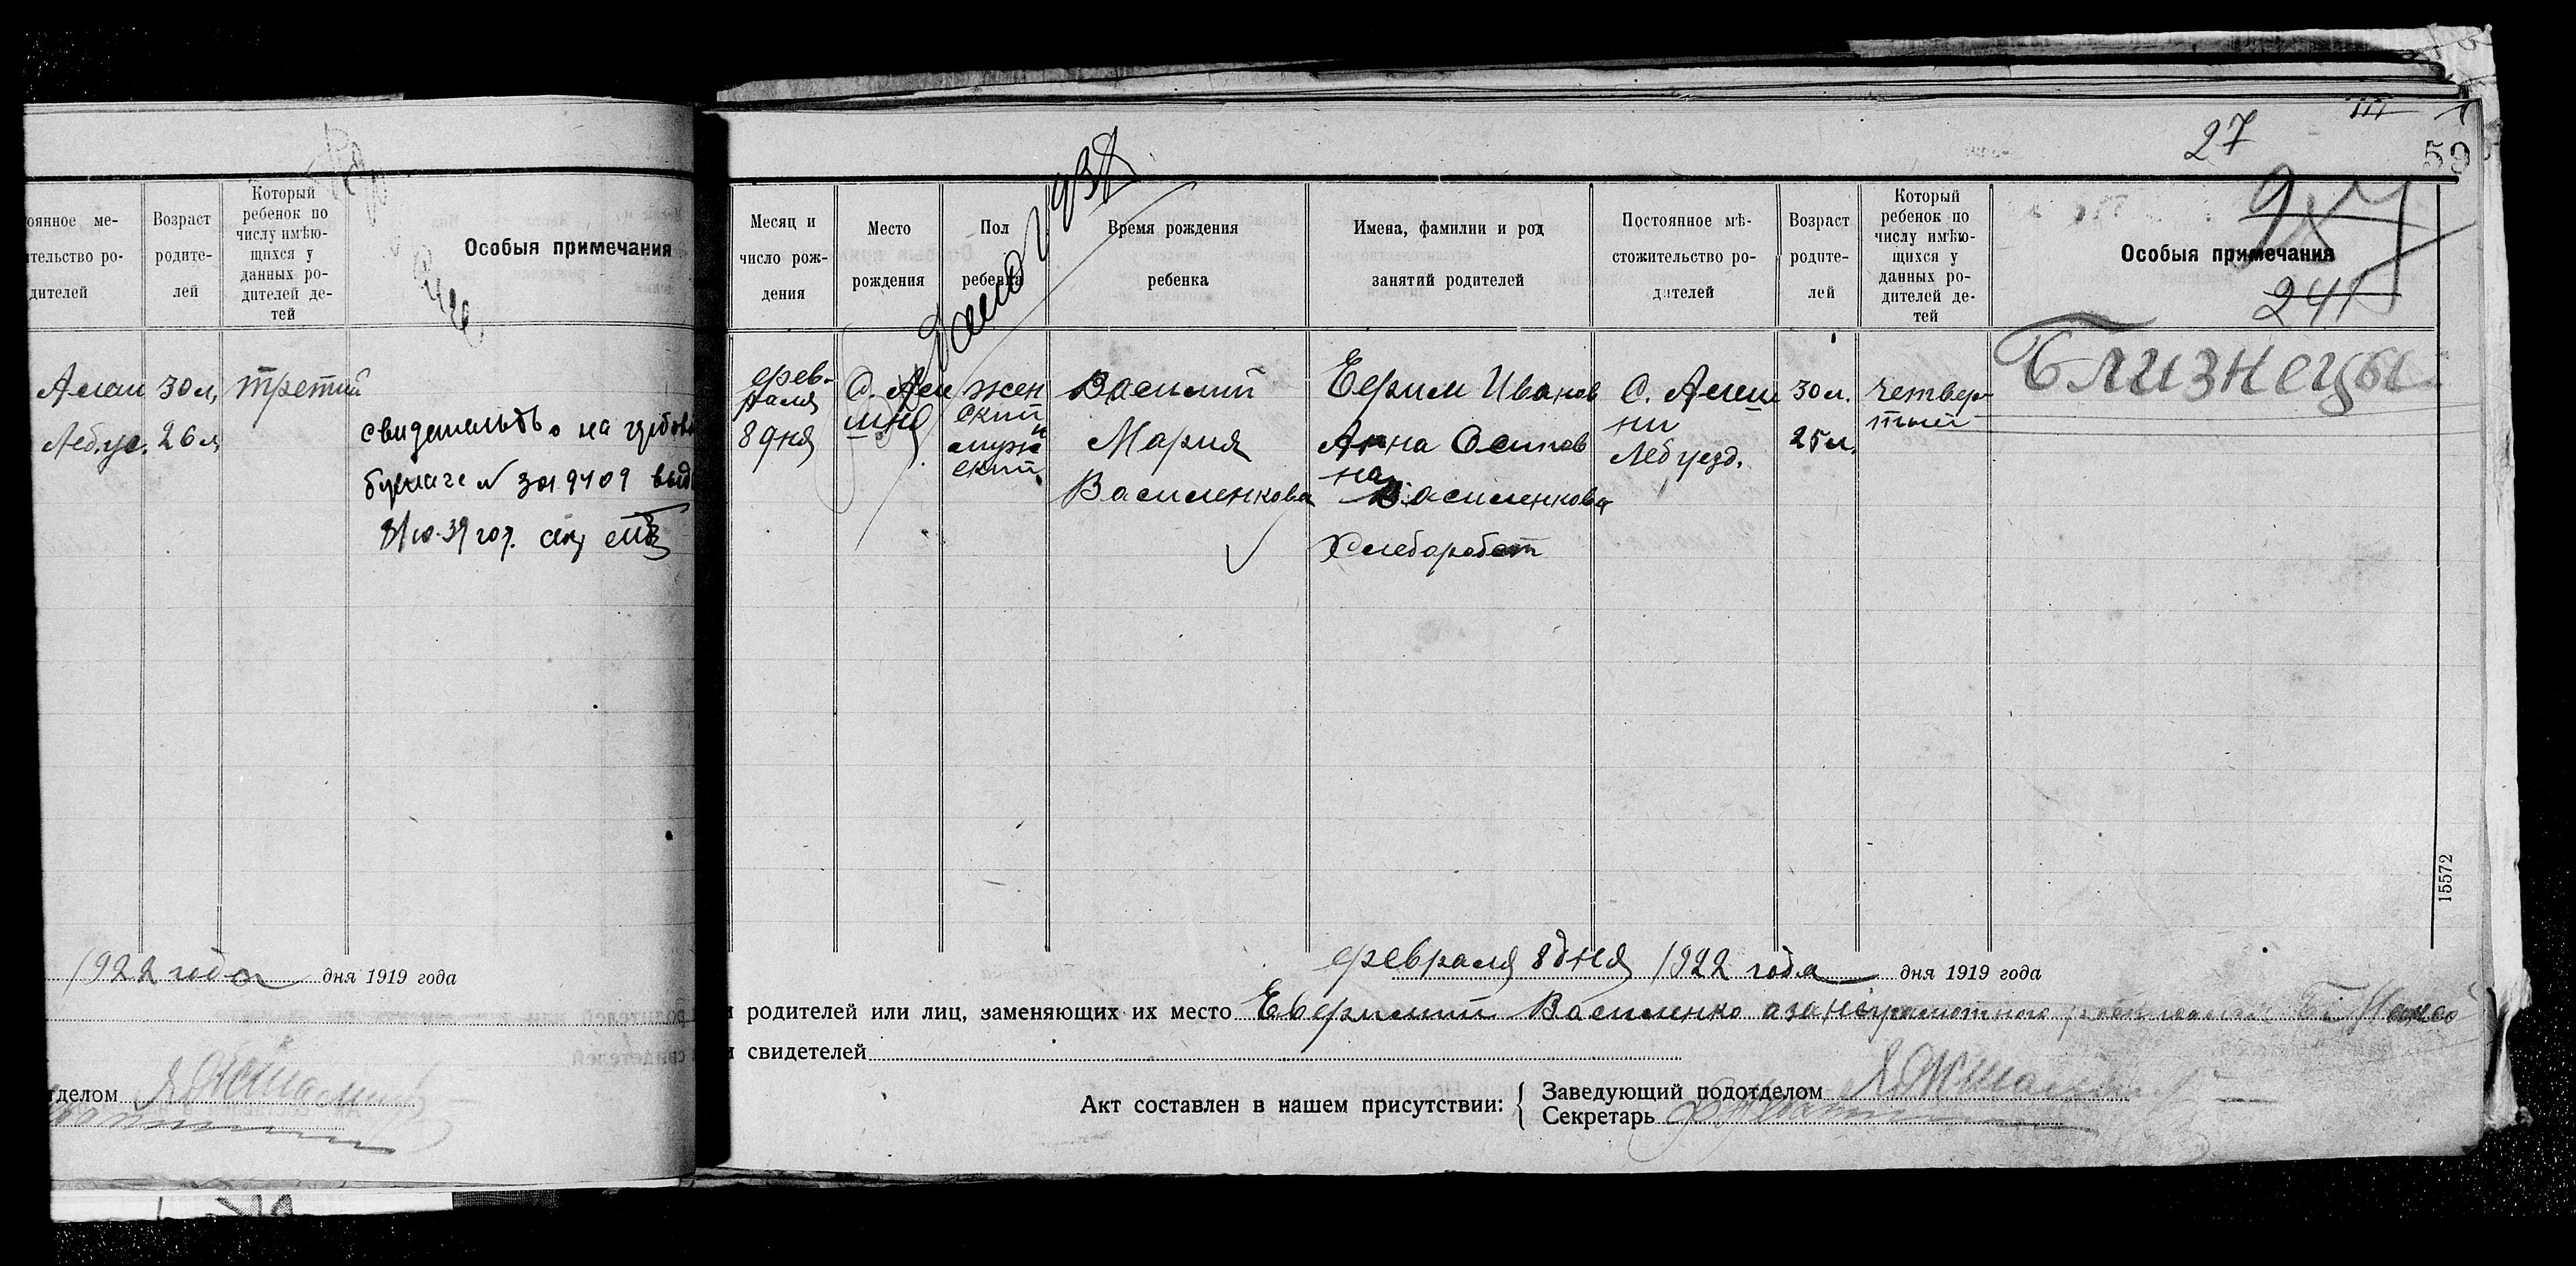 оянное ме-
тельство ро-
дителей
Возраст
родите-
лей
Который
ребенок по
числу имѣю-
щихся у
данных ро-
дителей де-
тей
Особыя примечания
30 л, третий
Леб. уе. 26 л,
свидетельство на гербовой
бумаге № 3019409 выд
1922 года дня 1919 года
тделом
27
59
Месяц и
число рож-
дения
Место
рождения
Пол
ребенка
Время рождения
ребенка
Имена, фамилии и род
занятий родителей
Постоянное мѣ-
стожительство ро-
дителей
Возраст
родите-
лей
Который
ребенок по
числу имѣю-
щихся у
данных ро-
дителей де-
тей
Особыя примечания
241
фев-
раля
8 дня
жен
ский
и
муж
ский
Василий
Мария
Василенкова
Ефрем Иванов
Анна Осипов
на
Василенкова
Хлебороб
Леб уезд.
30 л.
25 л.
четвер-
тый
Близнецы
15572
февраля 8 дня 1922 года дня 1919 года
родителей или лиц, заменяющих их место Василенко а за неграмотного
свидетелей
Акт составлен в нашем присутствии:
Заведующий подотделом
Секретарь